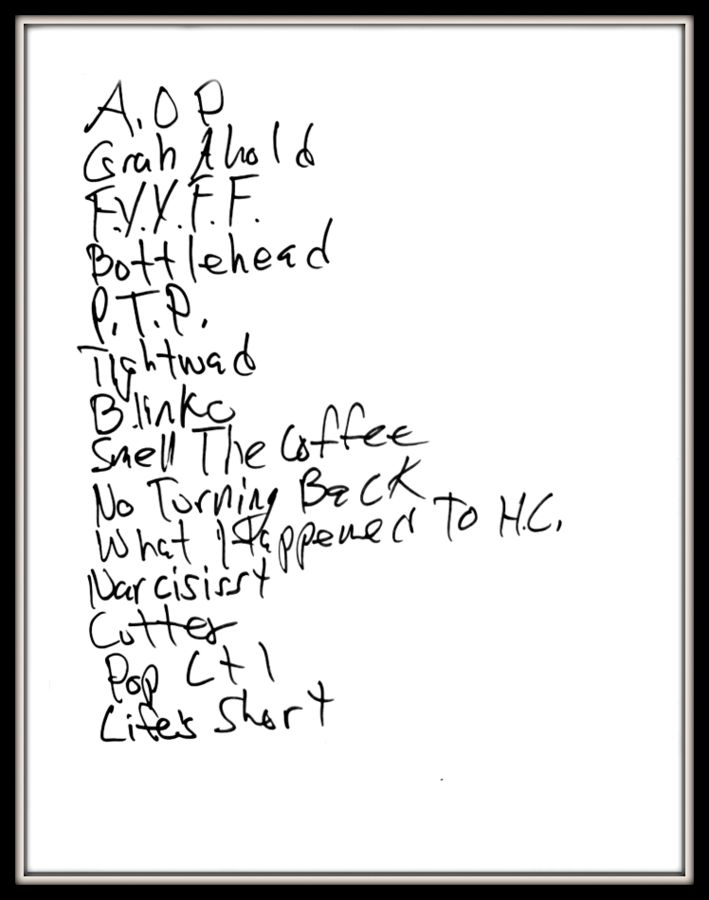 A.O P
Grab Ahold
F.Y.Y.F.F.
Bottlehead
P.T.P.
Tightwad
Blinko
Smell The Coffee
No Turning Back
What Happened To H.C.
Narcisisst
Cutter
Pop Ct 1
Life's Short